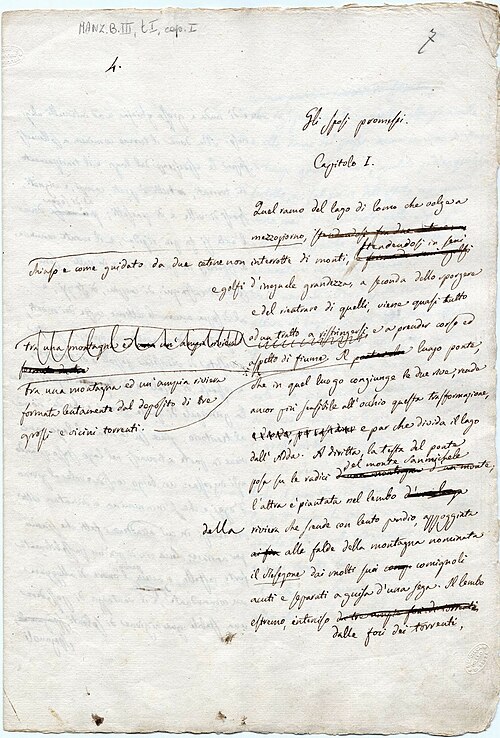 MANZ.B.III, t I, cap. I
7
4.
Gli sposi promessi.
Capitolo I.
Quel ramo del lago di Como che volge a
mezzogiorno,
stendendosi in seni
chiuso e come guidato da due catene non interrotte di monti,
e golfi d'ineguale grandezza, a seconda dello sporgere
e del rientrare di quelli, viene quasi tutto
ad un tratto a ristringersi e a prender corso ed
tra una montagna ed un'ampia riviera
aspetto di fiume. Il luogo ponte
tra una montagna ed un'ampia riviera
che in quel luogo congiunge le due rive rende
formata lentamente dal deposito di tre
ancor più sensibile all'occhio questa trasformazione,
grossi e vicini torrenti.
e par che divida il lago
dall'Adda. A diritta, la testa del ponte
posa su le radici del monte Sanmichele
l'altra è piantata nel lembo
della riviera che scende con lento pendio, appoggiata
alle falde della montagna nominata
il Resegone dai molti suoi comignoli
acuti e separati a guisa d'una sega. Il lembo
estremo, interciso
dalle foci dei torrenti,